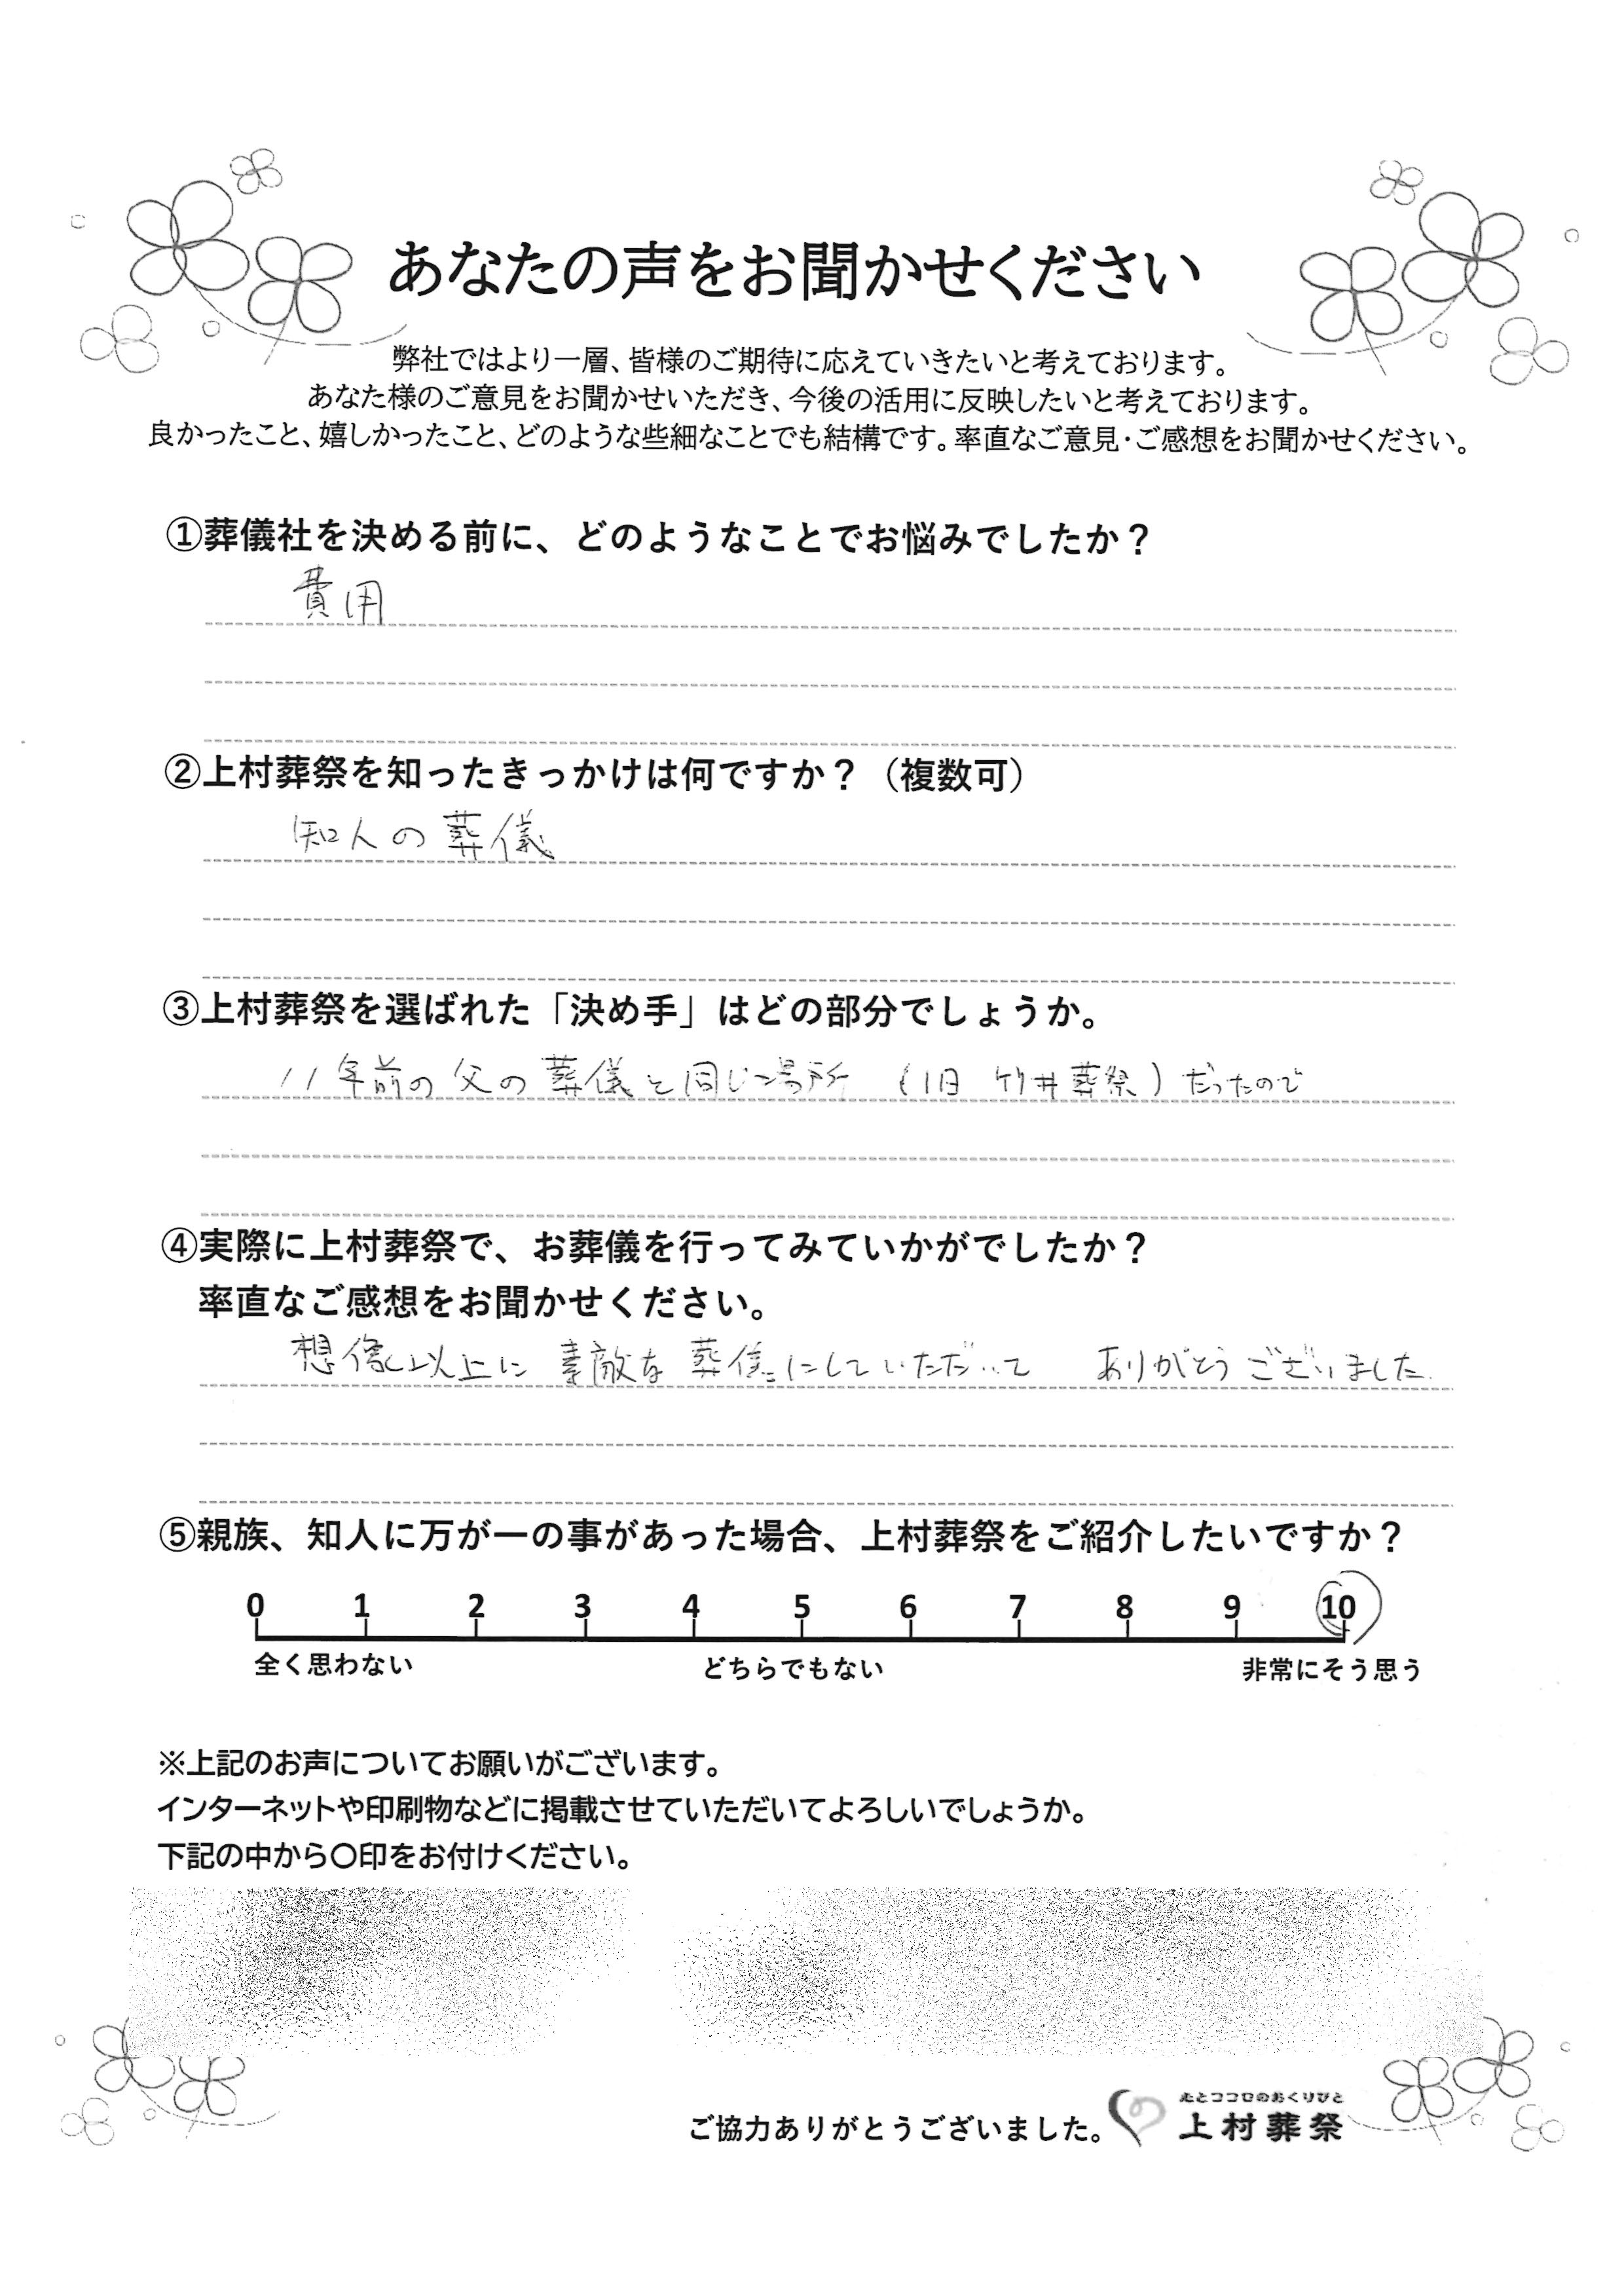 あなたの声をお聞かせください
弊社ではより一層、皆様のご期待に応えていきたいと考えております。
あなた様のご意見をお聞かせいただき、今後の活用に反映したいと考えております。
良かったこと、嬉しかったこと、どのような些細なことでも結構です。率直なご意見・ご感想をお聞かせください。
①葬儀社を決める前に、どのようなことでお悩みでしたか？
費用
②上村葬祭を知ったきっかけは何ですか？（複数可）
知人の葬儀
③上村葬祭を選ばれた「決め手」はどの部分でしょうか。
11年前の父の葬儀と同じ場所（旧 竹井葬祭）だったので
④実際に上村葬祭で、お葬儀を行ってみていかがでしたか？
率直なご感想をお聞かせください。
想像以上に 素敵な 葬儀にしていただいて ありがとうございました
⑤親族、知人に万が一の事があった場合、上村葬祭をご紹介したいですか？
0 1 2 3 4 5 6 7 8 9 10
全く思わない どちらでもない 非常にそう思う
※上記のお声についてお願いがございます。
インターネットや印刷物などに掲載させていただいてよろしいでしょうか。
下記の中から〇印をお付けください。
ご協力ありがとうございました。
心とココロのおくりびと
上村葬祭